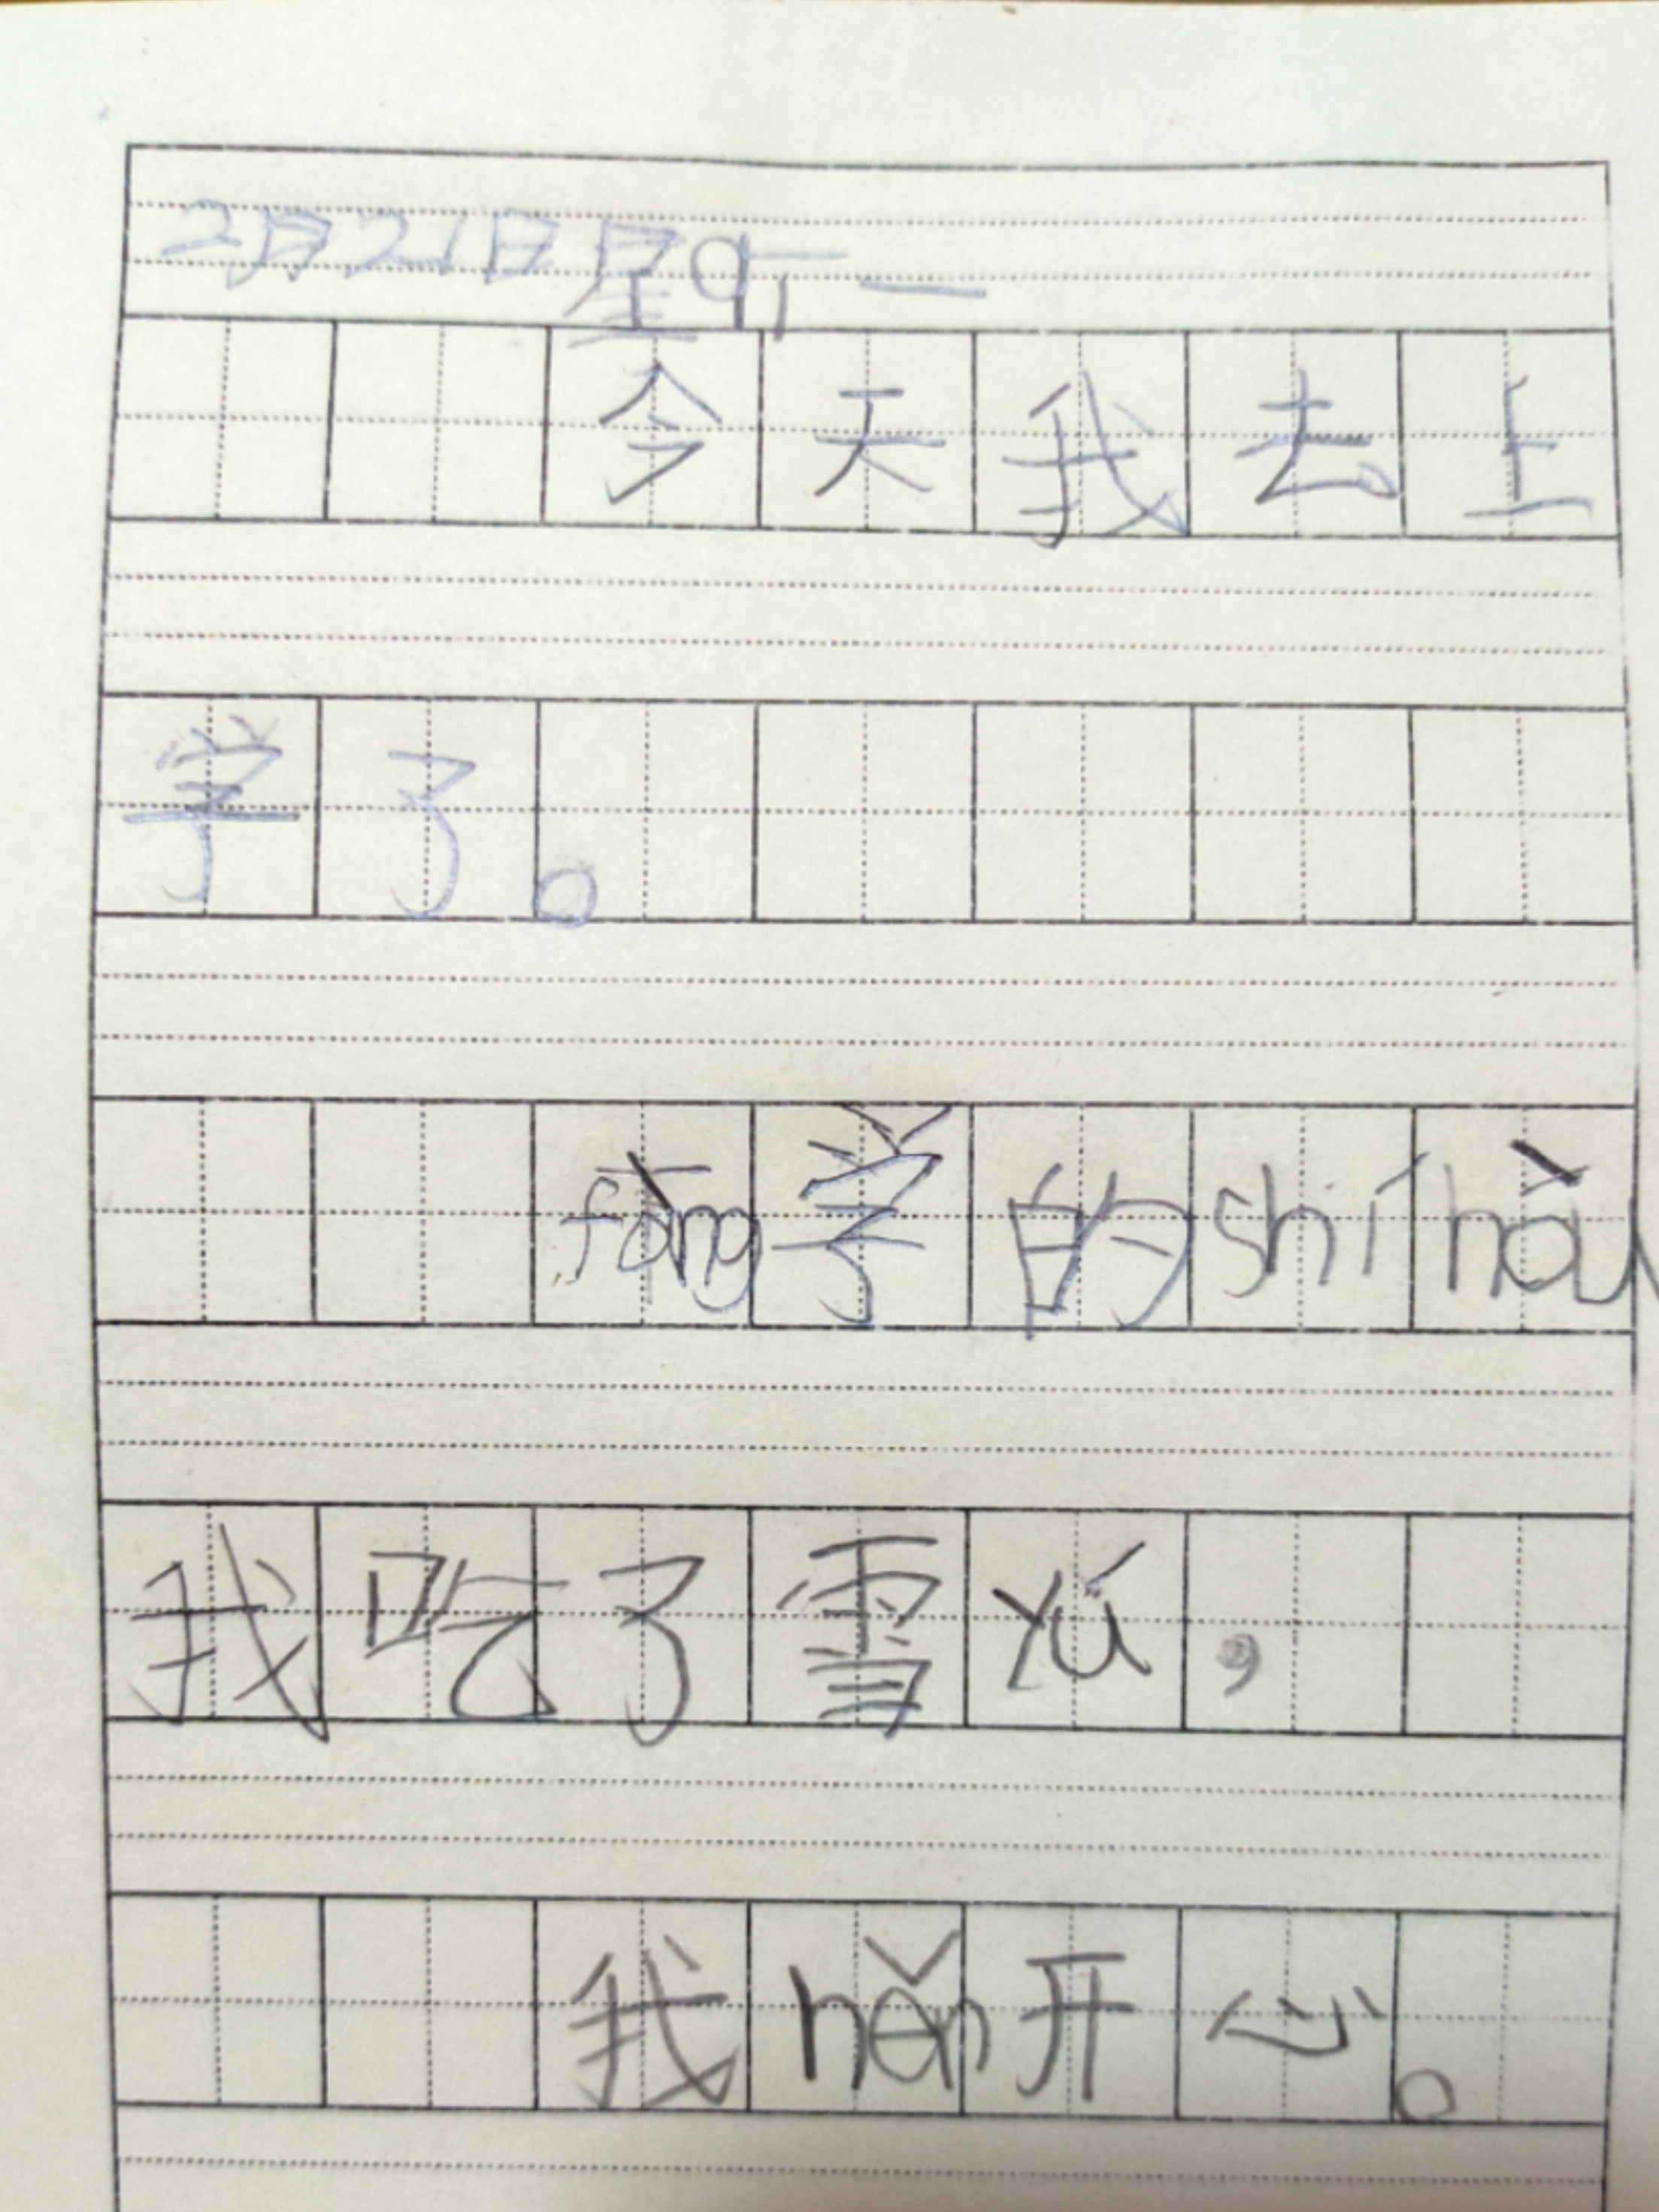 2月21日星qī一
今天我去上
学了。
fàng学的shíhòu
我吃了雪yú,
我hěn开心。